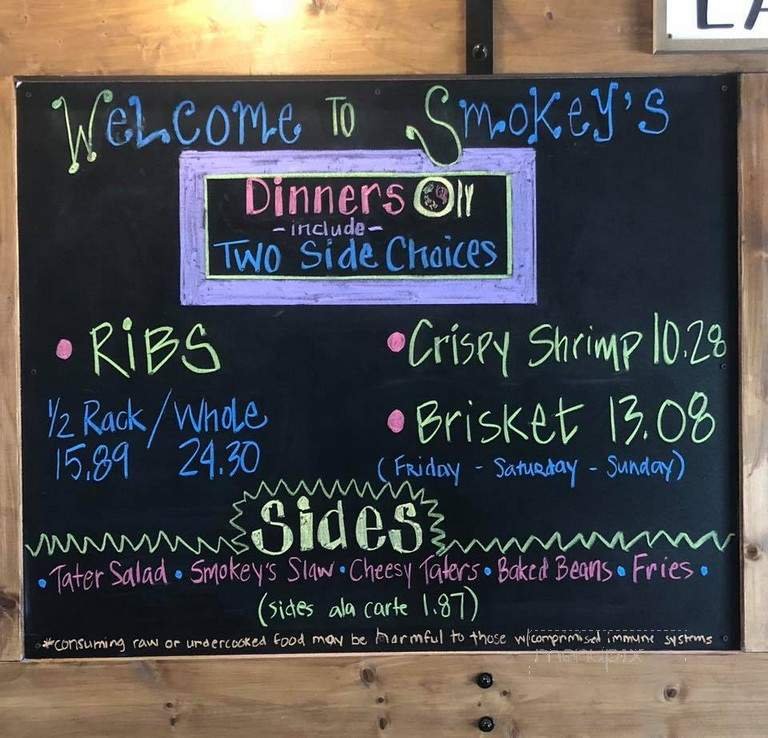 WELCOME TO SMOKEY'S
Dinners Oly
- include -
Two Side Choices
• RiBS
1/2 Rack / Whole
15.89 24.30
• Crispy Shrimp 10.28
• Brisket 13.08
(Friday - Saturday - Sunday)
Sides
• Tater Salad • Smokey's Slaw • Cheesy Taters • Baked Beans • Fries •
(sides ala carte 1.87)
*consuming raw or undercooked food may be harmful to those w/comprimised immune systems
menupix